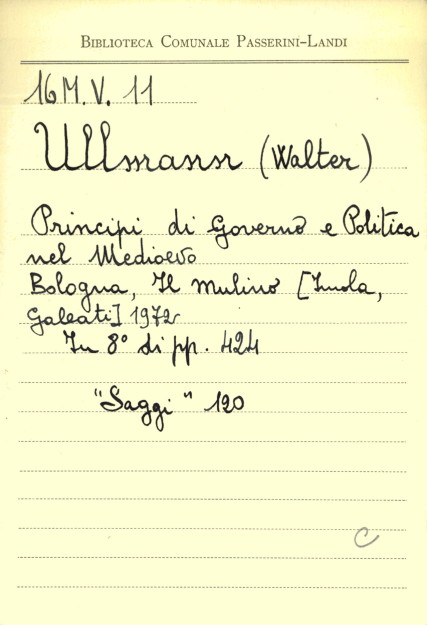 BIBLIOTECA COMUNALE PASSERINI-LANDI
16 M. V. 11
Ullmann (Walter)
Principi di Governo e Politica
nel Medioevo
Bologna, Il Mulino [Imola,
Galeati] 1972
In 8° di pp. 424
"Saggi" 120
C